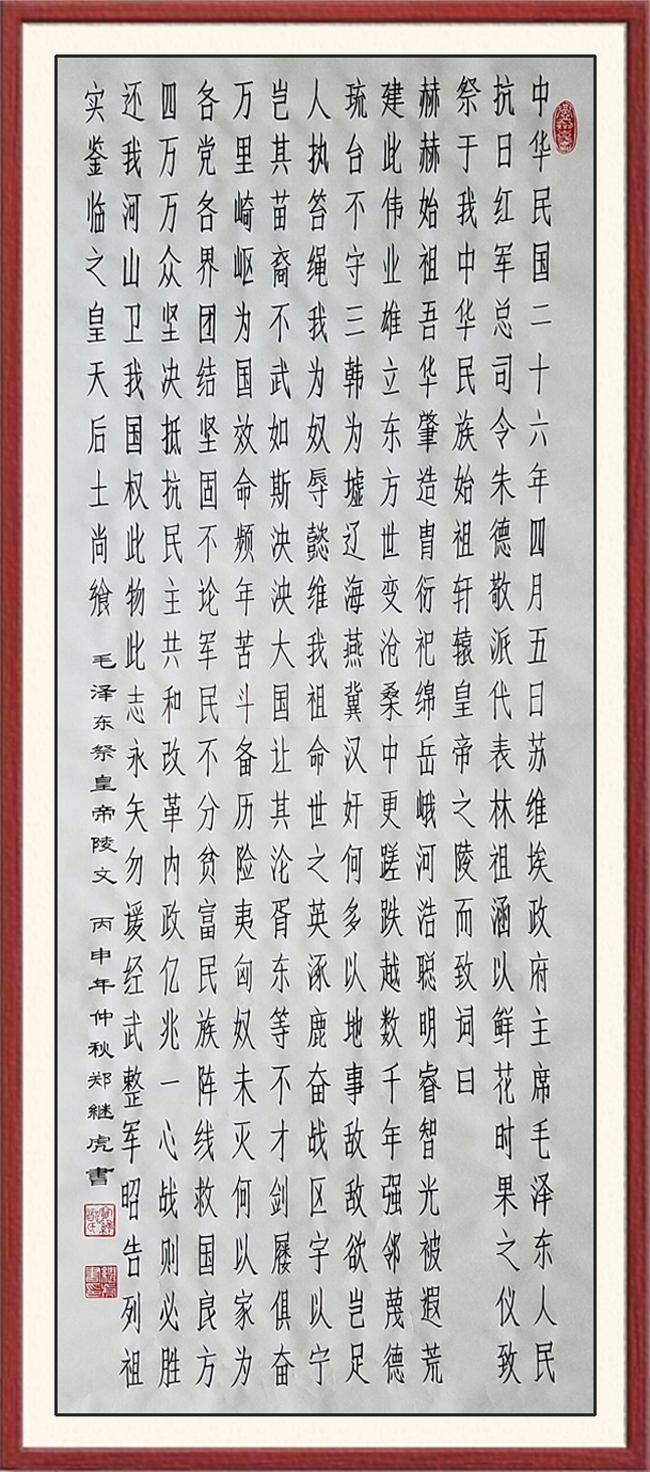 中华民国二十六年四月五日苏维埃政府主席毛泽东人民
抗日红军总司令朱德敬派代表林祖涵以鲜花时果之仪致
祭于我中华民族始祖轩辕皇帝之陵而致词曰
赫赫始祖吾华肇造胄衍祀绵岳峨河浩聪明睿智光被遐荒
建此伟业雄立东方世变沧桑中更蹉跌越数千年强邻蔑德
琉台不守三韩为墟辽海燕冀汉奸何多以地事敌敌欲岂足
人执笞绳我为奴辱懿维我祖命世之英涿鹿奋战区宇以宁
岂其苗裔不武如斯泱泱大国让其沦胥东等不才剑屦俱奋
万里崎岖为国效命频年苦斗备历险夷匈奴未灭何以家为
各党各界团结坚固不论军民不分贫富民族阵线救国良方
四万万众坚决抵抗民主共和改革内政亿兆一心战则必胜
还我河山卫我国权此物此志永矢勿谖经武整军昭告列祖
实鉴临之皇天后土尚飨
毛泽东祭皇帝陵文 丙申年仲秋郑継虎書